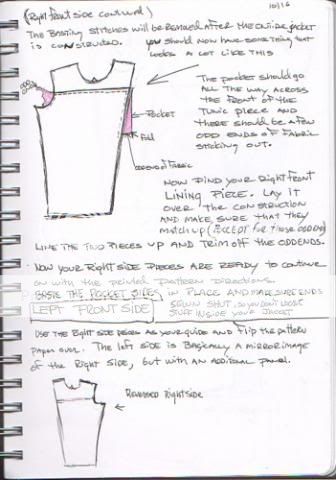 (Right front side continued)
10/16
The Basting stitches will be removed after the entire jacket
is constructed. You should now have something that
looks a lot like this
The pocket should go
all the way across
the front of the
tunic piece and
there should be a few
odd ends of fabric
sticking out.
Pocket
Fold
odd end of fabric
Now find your right front
lining piece. Lay it
over the construction
and make sure that they
match up (except for those odd ends)
Line the two pieces up and trim off the odd ends.
Now your right side pieces are ready to continue
on with the printed pattern directions.
Baste the pocket sides in place and make sure ends
sewn shut, so you don't lose
stuff inside your jacket
LEFT FRONT SIDE
Use the Right side pieces as your guide and flip the pattern
paper over. The left side is basically a mirror image
of the Right side, but with an additional panel.
Reversed Right side